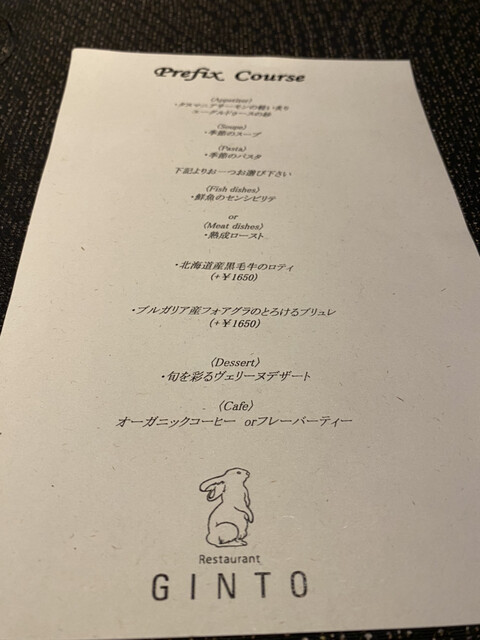 Prefix Course
〈Appetizer〉
・タスマニアサーモンの軽い炙り
エーグルドゥースの酢
〈Soupe〉
・季節のスープ
〈Pasta〉
・季節のパスタ
下記よりお一つお選び下さい
〈Fish dishes〉
・鮮魚のセンシビリテ
or
〈Meat dishes〉
・熟成ロースト
・北海道産黒毛牛のロティ
(+￥1650)
・ブルガリア産フォアグラのとろけるブリュレ
(+￥1650)
〈Dessert〉
・旬を彩るヴェリーヌデザート
〈Cafe〉
オーガニックコーヒー orフレーバーティー
Restaurant
GINTO